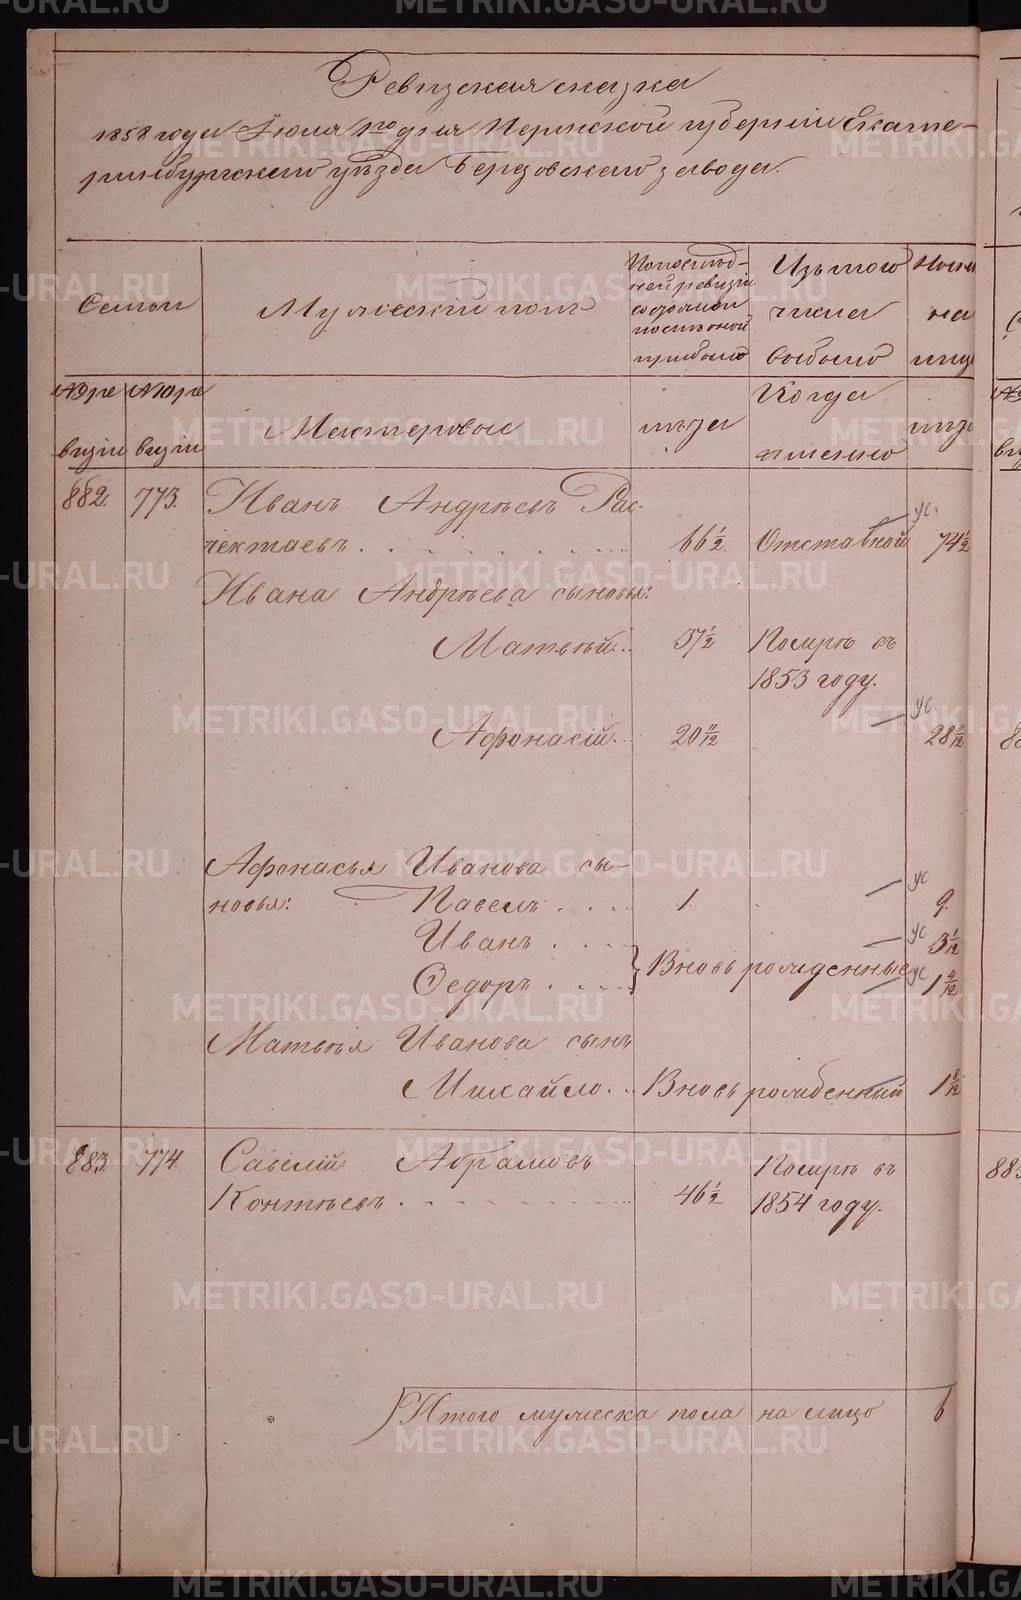 Ревизская сказка
1858 года Июля 1го дня Пермской губернiи Екате-
ринбургскаго уѣзда Березовскаго завода.
Семьи
Мужескiй полъ
По послѣд-
ней ревизiи
состояло и
послѣ оной
прибыло
Изъ того
числа
выбыло
Ныне
на
лицо
№ 9 ре
визiи
№ 10 ре
визiи
Мастеровые
лѣта
Когда
именно
лѣта
882. 773. Иванъ Андрѣевъ Рас-
чектаевъ 66 1/2. Отставной ус. 74 1/2
Ивана Андрѣева сыновья:
Матвѣй 57 1/2 Помре въ
1853 году.
Афонасiй 20 11/12 ус. 28 11/12
Афонасья Иванова сы-
новья: Павелъ 1. ус 9.
Иванъ ус 3 1/12
Федоръ Вновь рожденные ус 1 4/12
Матвѣя Иванова сынъ
Михайло Вновь рожденный 1 8/12
883. 774. Савелiй Абрамовъ Помре въ
Контѣевъ 46 1/2 1854 году.
Итого мужеска пола на лицо 6
METRIKI.GASO-URAL.RU